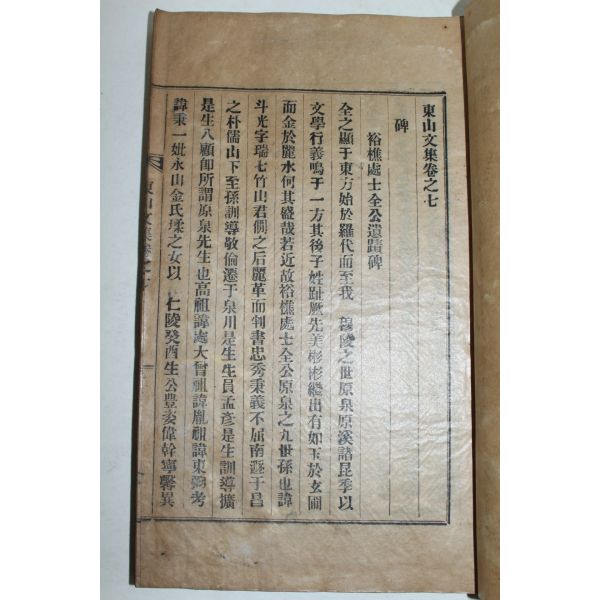 東山文集卷之七
碑
裕樵處士全公遺蹟碑
全之顯于東方始於羅代而至我 穆陵之世原泉原溪諸昆季以
文學行義鳴于一方其後子姓趾厥先美彬彬繼出有如玉於玄圃
而金於麗水何其盛哉若近故裕樵處士全公原泉之九世孫也諱
斗光字瑞七竹山君僩之后麗革而判書忠秀秉義不屈南遯于昌
之朴儒山下至孫訓導敬倫遷于泉川是生生員孟彥是生訓導擴
是生八顧卽所謂原泉先生也高祖諱處大曾祖諱胤祖諱東弼考
諱秉一妣永山金氏瑈之女以 仁陵癸酉生公豊姿偉幹寧馨異
東山文集卷之七